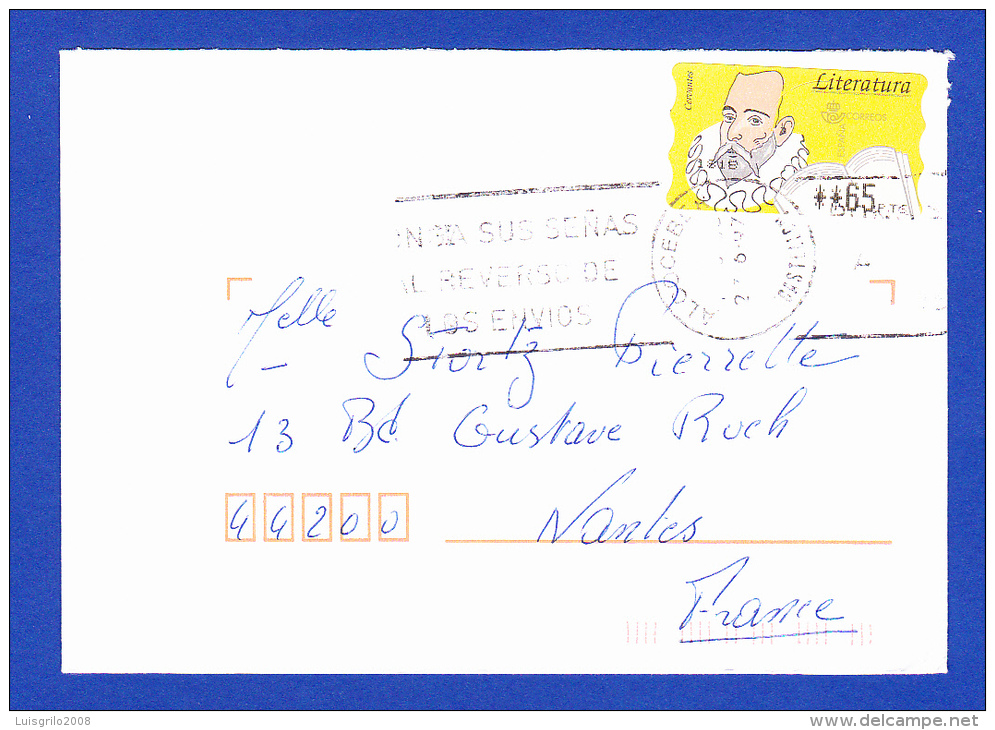 Cervantes
Literatura
CORREOS
ESPAÑA
**65
PTE
SUS SEÑAS
AL REVERSO DE
LOS ENVIOS
27
Melle Stortz Pierrette
13 Bd Gustave Roch
44200 Nantes
France
Luisgrilo2008
delcampe.net